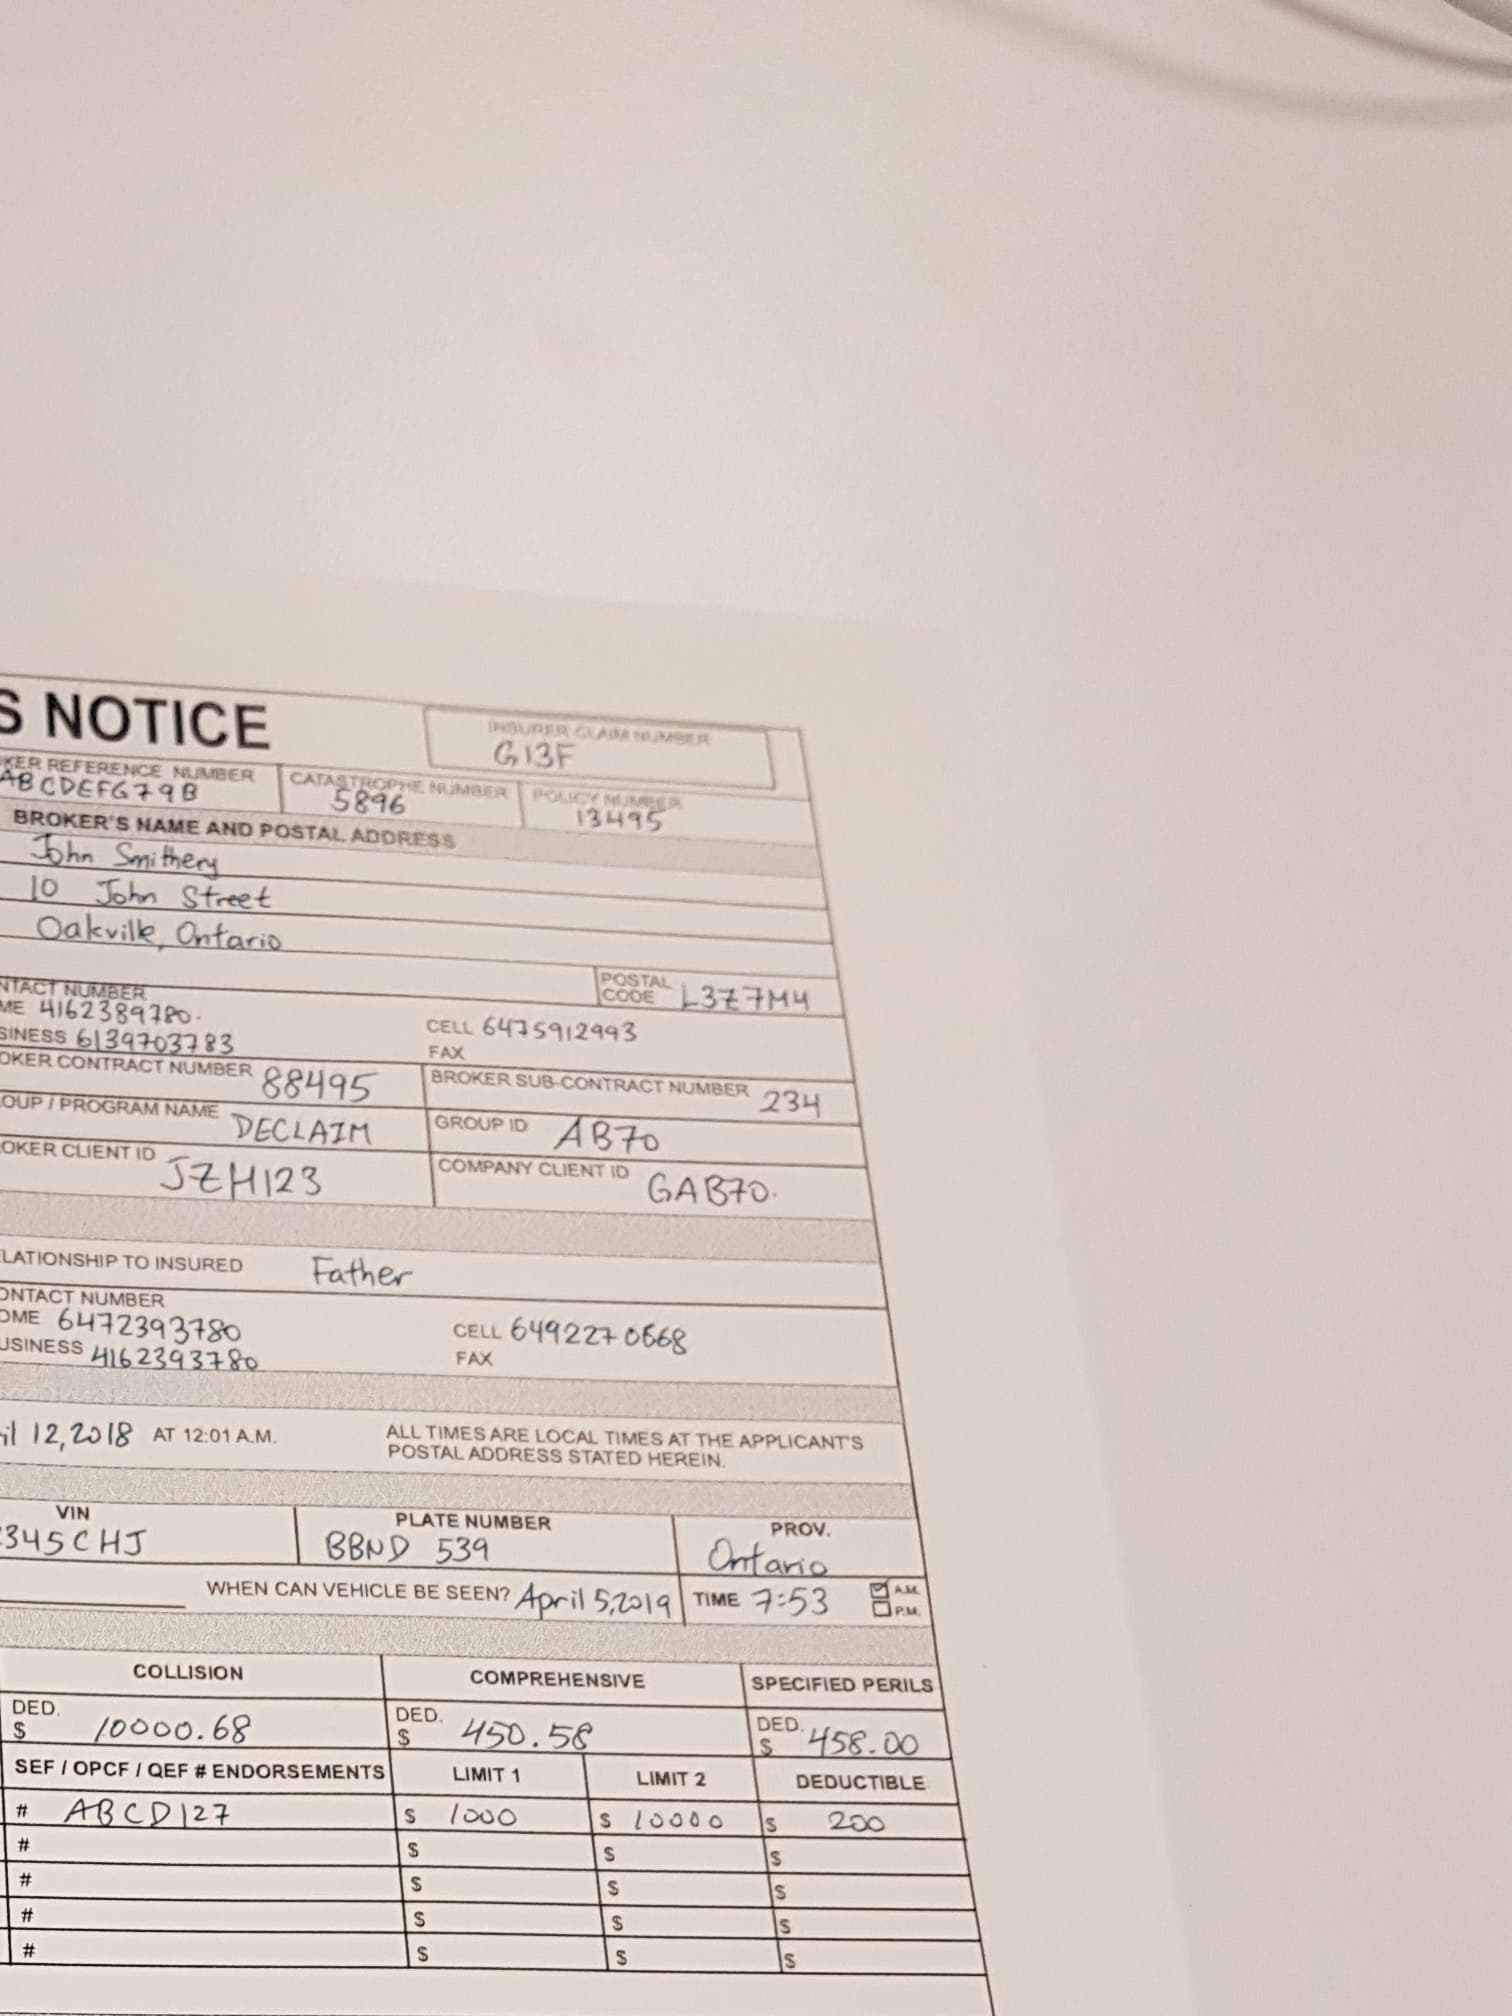 S NOTICE
INSURER CLAIM NUMBER
G13F
KER REFERENCE NUMBER CATASTROPHE NUMBER POLICY NUMBER
ABCDEFG79B 5896 13495
BROKER'S NAME AND POSTAL ADDRESS
John Smithery
10 John Street
Oakville, Ontario
POSTAL CODE L3Z7M4
NTACT NUMBER
ME 4162389780. CELL 6475912993
SINESS 6139703783 FAX
OKER CONTRACT NUMBER 88495 BROKER SUB-CONTRACT NUMBER 234
OUP / PROGRAM NAME DECLAIM GROUP ID AB70
OKER CLIENT ID JZH123 COMPANY CLIENT ID GAB70.
ELATIONSHIP TO INSURED Father
ONTACT NUMBER
OME 6472393780 CELL 6492270668
USINESS 4162393780 FAX
il 12,2018 AT 12:01 A.M. ALL TIMES ARE LOCAL TIMES AT THE APPLICANT'S
POSTAL ADDRESS STATED HEREIN.
VIN PLATE NUMBER PROV.
345CHJ BBND 539 Ontario
WHEN CAN VEHICLE BE SEEN? April 5,2019 TIME 7:53 A.M.
P.M.
COLLISION COMPREHENSIVE SPECIFIED PERILS
DED. $ 10000.68 DED. $ 450.58 DED. $ 458.00
SEF / OPCF / QEF # ENDORSEMENTS LIMIT 1 LIMIT 2 DEDUCTIBLE
# ABCD127 $ 1000 $ 10000 $ 200
# $ $ $
# $ $ $
# $ $ $
# $ $ $